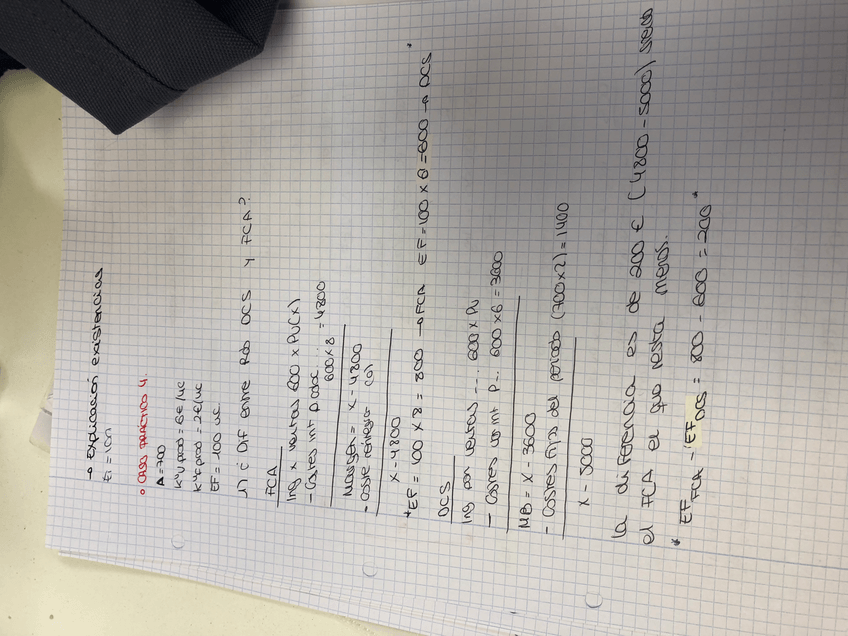 → Explicación existencias
Ei = 100
• CASO PRÁCTICO 4.
A = 700
K'v prod = 6€/uc
K'f prod = 2€/uc
EF = 100 uc.
1) ¿ Dif entre Rdo DCS y FCA?
FCA
Ing x ventas 600 x PU(X)
- Costes int prodc ... 600 x 8 = 4800
Margen = X - 4800
- Coste (0)
X - 4800
*EF = 100 x 8 = 800 → FCA EF = 100 x 6 = 600 → DCS *
DCS
Ing por ventas ... 600 x Pu
- Costes int P... 600 x 6 = 3600
MB = X - 3600
- Costes fijos del periodo (700 x 2) = 1400
X - 5000
La diferencia es de 200 € (4800 - 5000) siendo
el FCA el que resta menos.
* EF FCA - EF DCS = 800 - 600 = 200 *